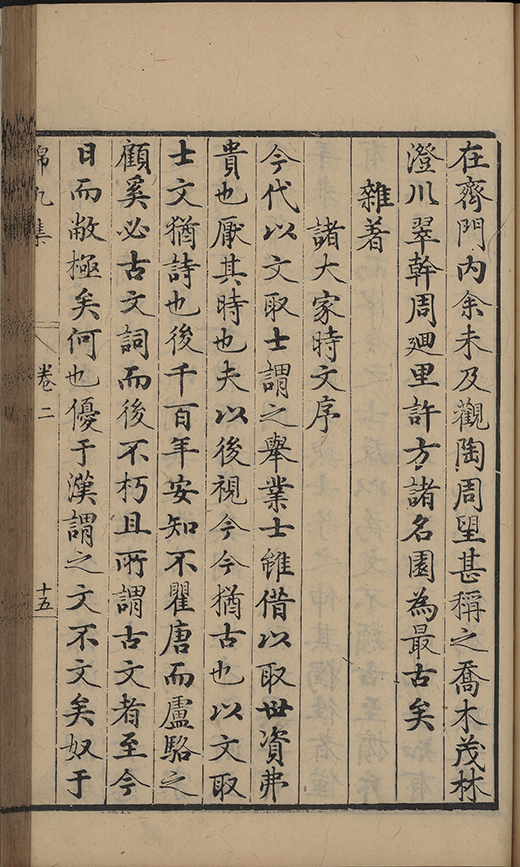 在齊門內余未及觀陶周望甚稱之喬木茂林
澄川翠幹周迴里許方諸名園為最古矣
雜著
諸大家時文序
今代以文取士謂之舉業士雖借以取世資弗
貴也厭其時也夫以後視今今猶古也以文取
士文猶詩也後千百年安知不瞿唐而盧駱之
顧奚必古文詞而後不朽且所謂古文者至今
日而敝極矣何也優于漢謂之文不文矣奴于
錦帆集
卷二
十五